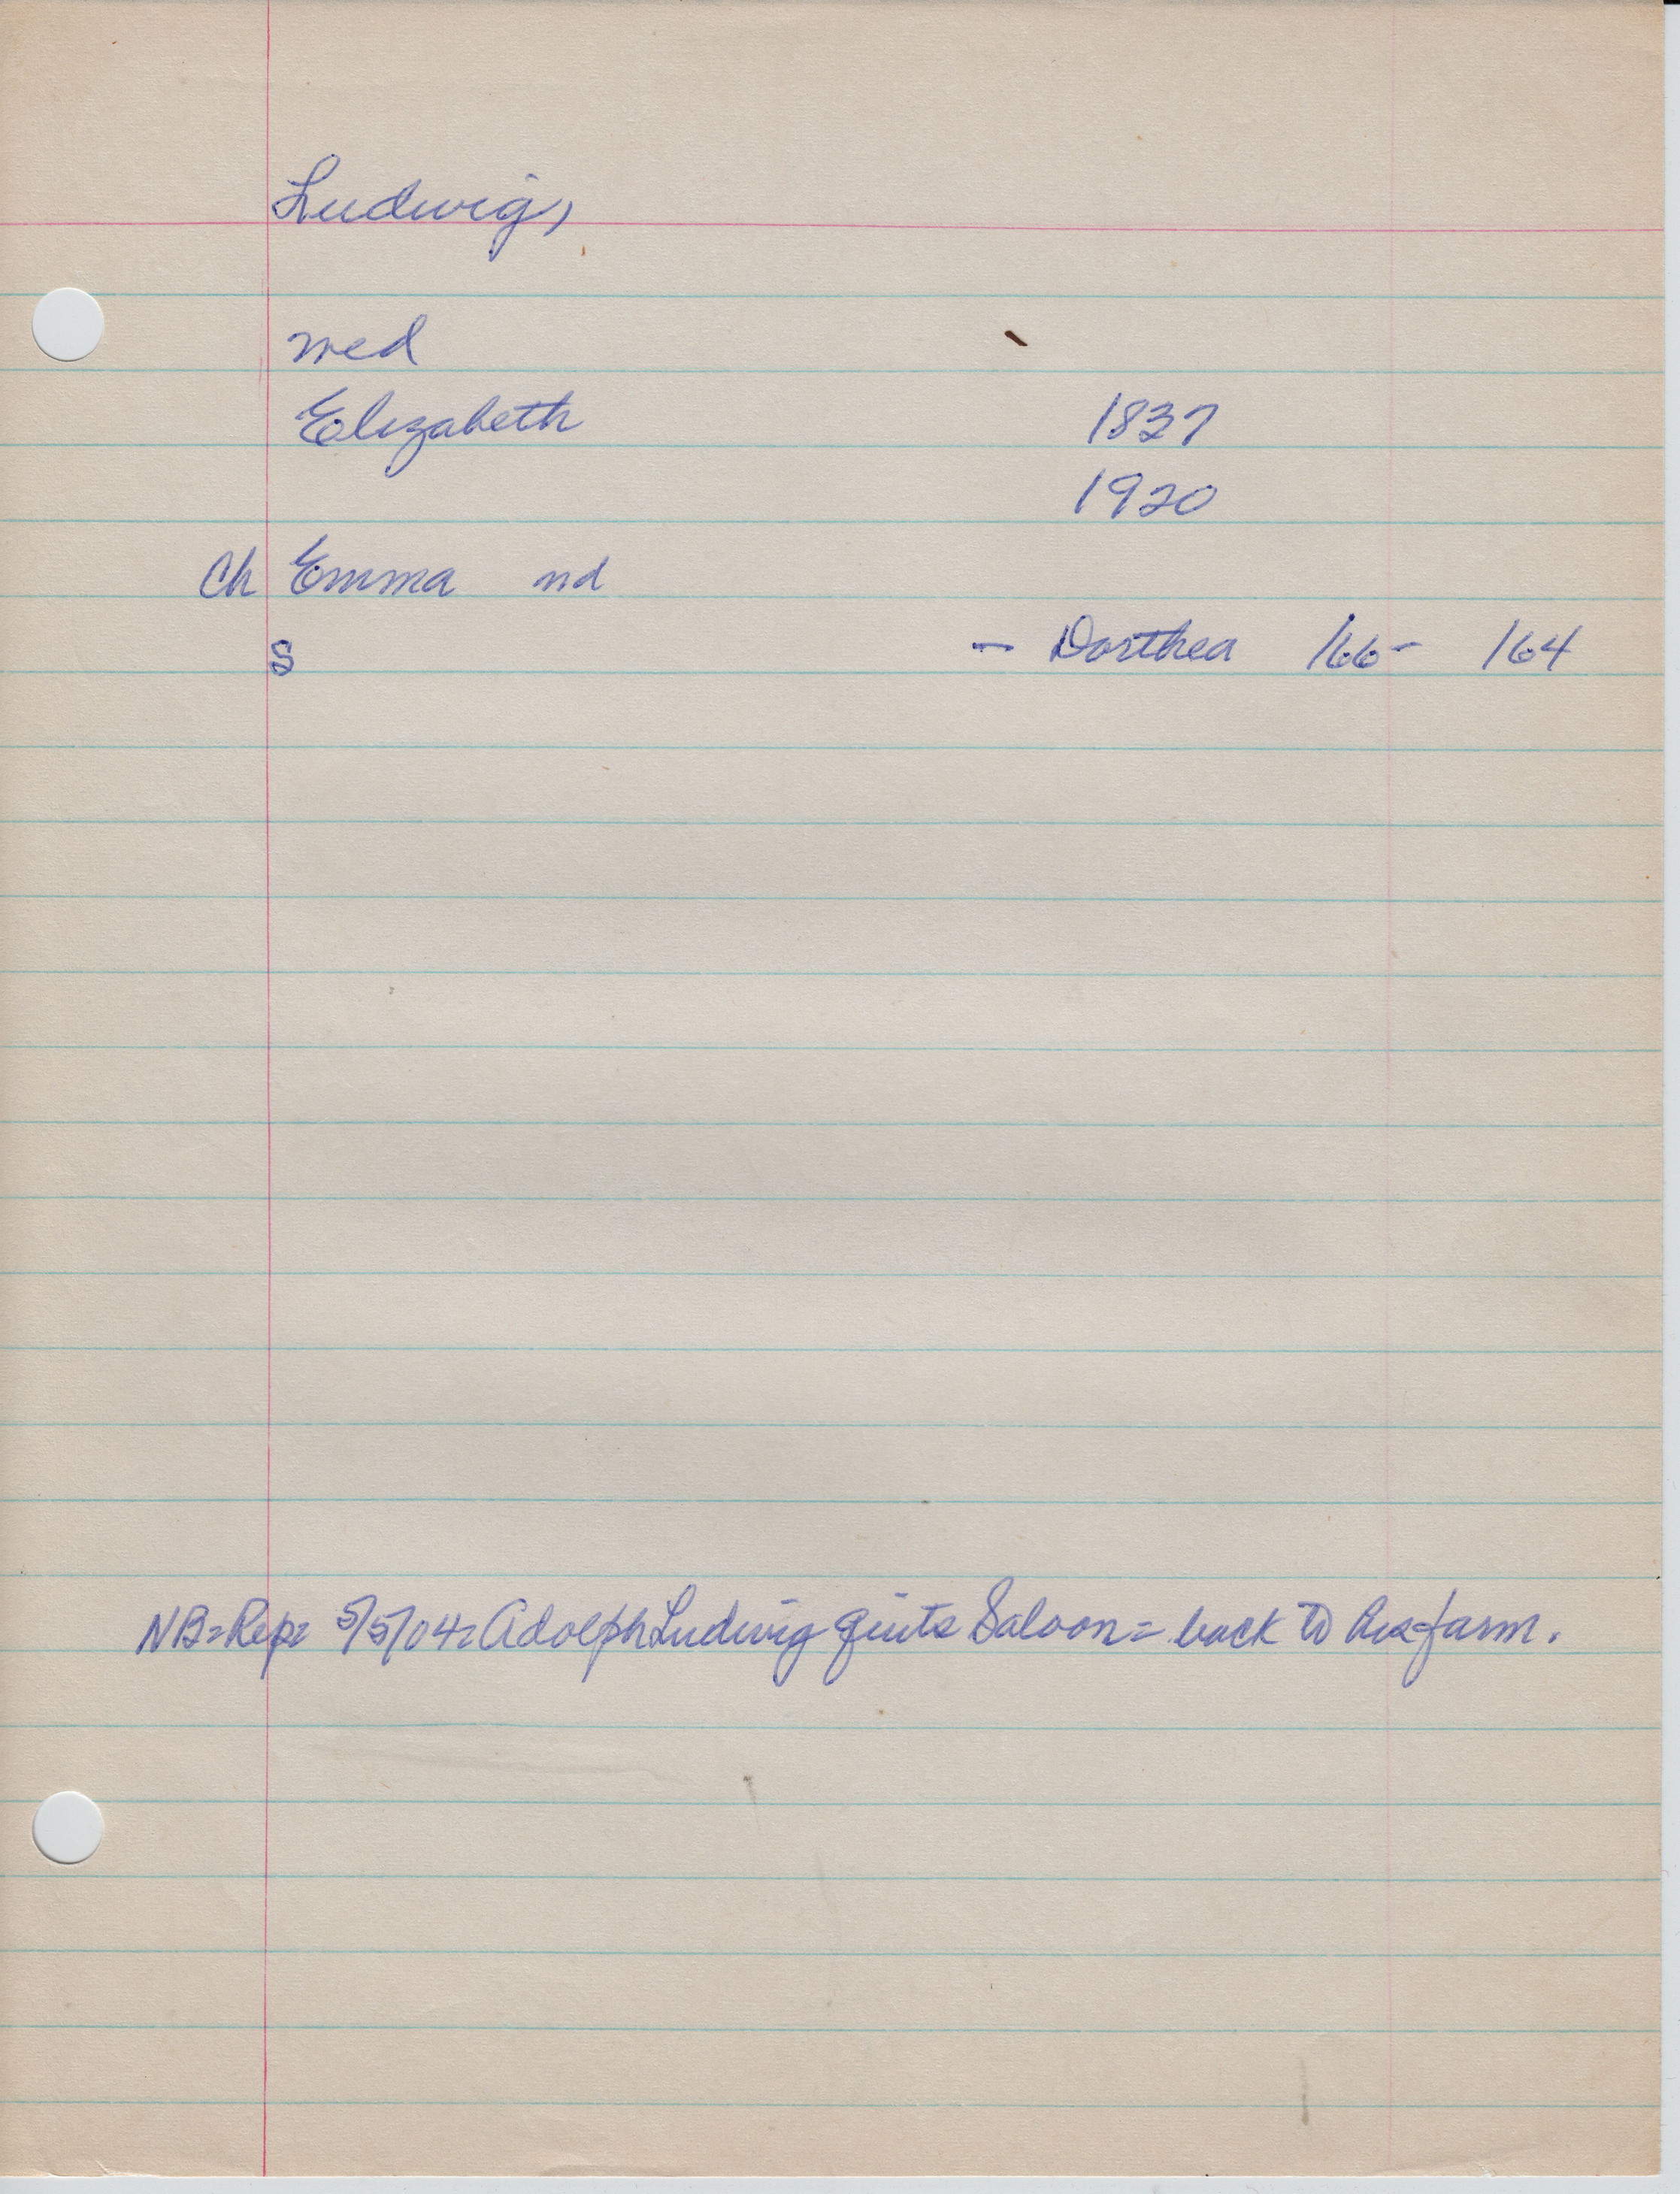 Ludwig,
wed
Elizabeth 1837
1920
Ch Emma nd
S - Dorthea 166- 164
NB=Rep= 5/5/04= Adolph Ludwig quits Saloon = back to his farm.